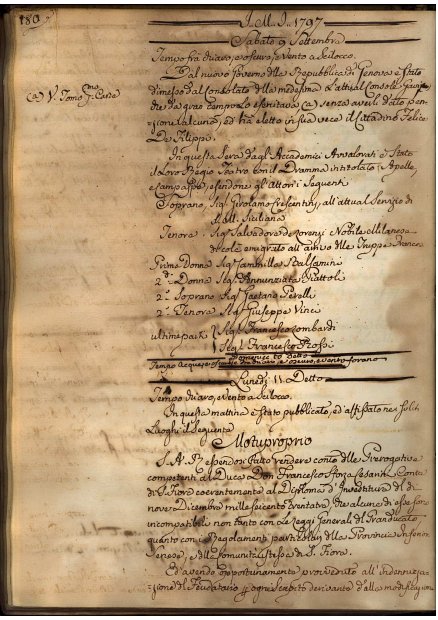 180.
I. M. I. 1797
Sabato 9 Settembra
Tempo frà chiaro, e oscuro, e Vento a Scilocco.
Dal nuovo Governo della Repubblica di Genova è Stato
dimesso dal Consolato della medesima l'attual Console
(a) V. Tomo Carte
da gran tempo lo esercitava (a) senza averli dato pen-
=sione alcuna, ed hà eletto in sua vece il Cittadino Felice
De Filippi.
In questa Sera dagli Accademici Avvalorati è Stato
il loro Regio Teatro con il Dramma intitolato: Apelle,
e Campaspe, essendone gli Attori i Seguenti
Soprano, Sig. Girolamo Crescentini, all'attual Servizio di
S. M. Siciliana
Tenore. Sig. Salvadore de Lorenzi Nobile Milanese
di colà emigrato all'arrivo delle Truppe Francesi
Prima Donna Sig.
2.ª Donna Sig. Annunziata
2.º Soprano Sig. Gaetano Perelli
2.º Tenore Sig. Giuseppe Vinci
ultime parti { Sig. Francesco Lombardi
Sig. Francesco Rossi
Domenica 10 Detto
Tempo
Lunedì 11 Detto
Tempo chiaro, e Vento a Scilocco.
In questa mattina è Stato pubblicato, ed affissato nei soliti
Luoghi il Seguente
Motuproprio
S. A. R. essendosi fatto rendere conto delle Prerogative
competenti al Duca Don Francesco Sforza Cesarini Conte
di S. Fiora coerentemente al Diploma d'Investitura del dì
nove Decembre mille seicento trentatre, che alcune di esse sono
incompatibili non tanto con Le Leggi Generali del Granducato
quanto con i Regolamenti particolari della Provincia Inferiore
Senese, e della Comunità stessa di S. Fiora.
Ed avendo opportunamente provveduto all'Indennizza-
=zione del Feudatario p ogni scapito derivante dalle modificazioni